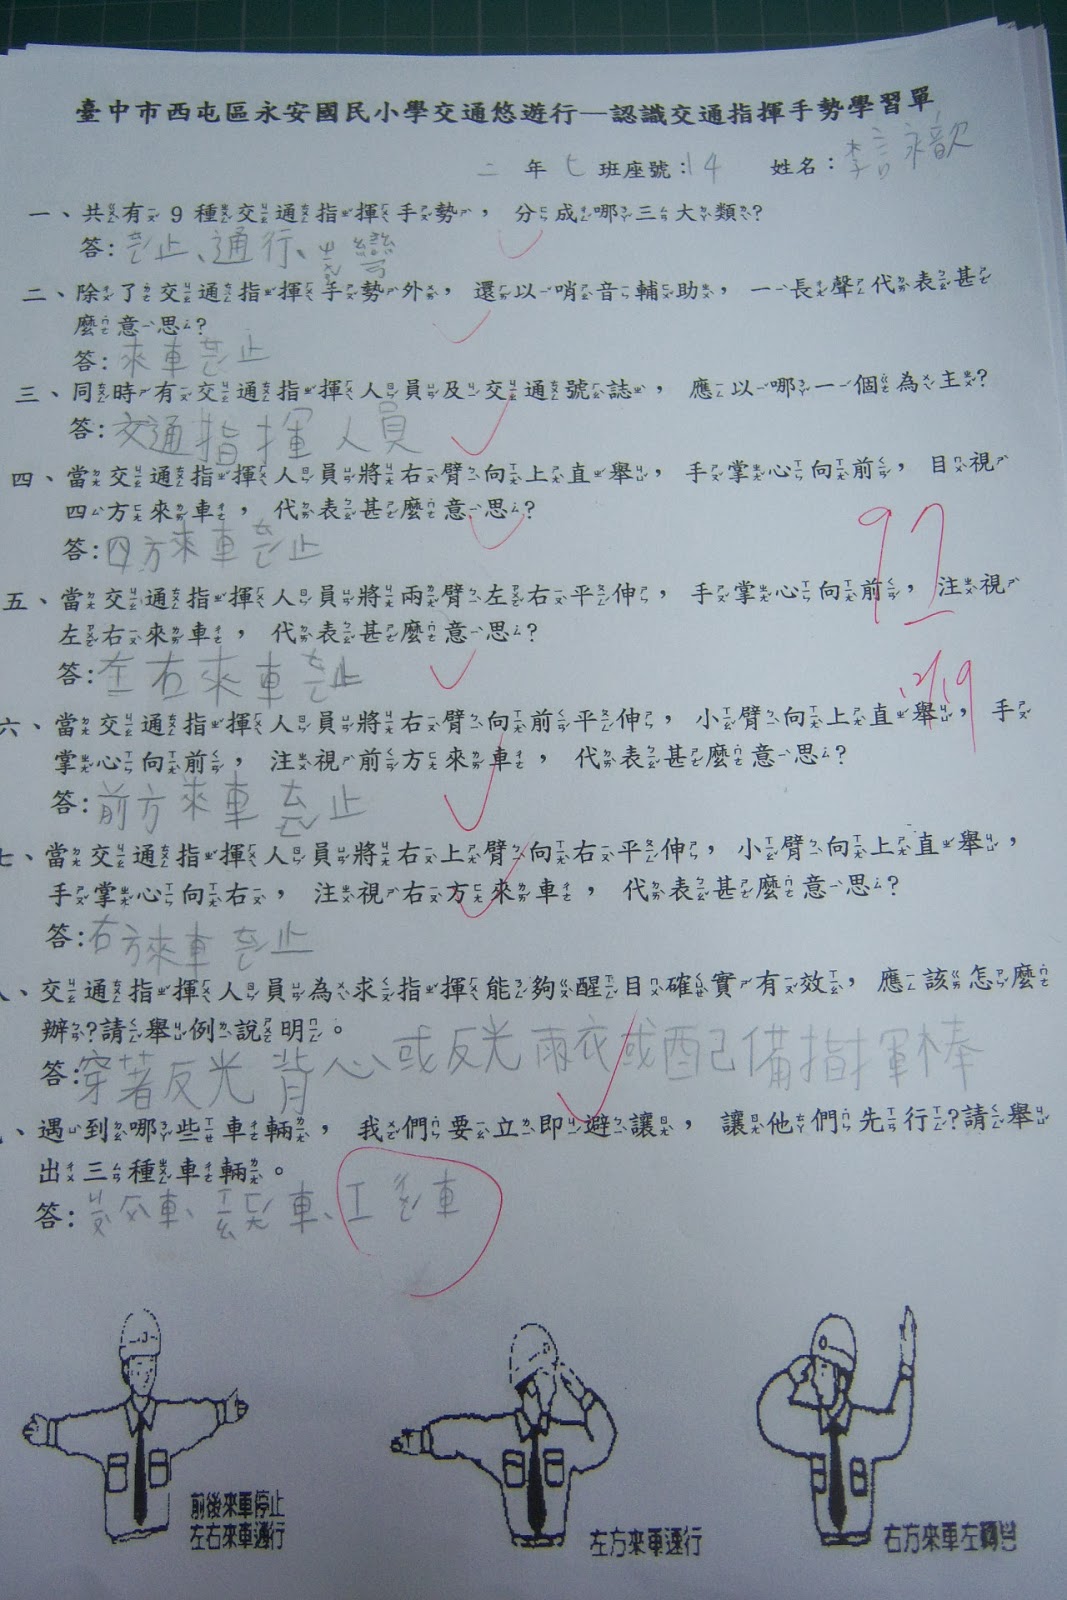 臺中市西屯區永安國民小學交通悠遊行—認識交通指揮手勢學習單
二 年 七 班座號：14 姓名：李詠歆
一、共有9種交通指揮手勢，分成哪三大類?
答：ㄊㄥˊ止、通行、ㄓㄨㄢˇ彎
二、除了交通指揮手勢外，還以哨音輔助，一長聲代表甚
麼意思?
答：來車ㄊㄥˊ止
三、同時有交通指揮人員及交通號誌，應以哪一個為主?
答：交通指揮人員
四、當交通指揮人員將右臂向上直舉，手掌心向前，目視
四方來車，代表甚麼意思?
答：四方來車ㄊㄥˊ止
97
五、當交通指揮人員將兩臂左右平伸，手掌心向前，注視
左右來車，代表甚麼意思?
答：左右來車ㄊㄥˊ止
12/19
六、當交通指揮人員將右臂向前平伸，小臂向上直舉，手
掌心向前，注視前方來車，代表甚麼意思?
答：前方來車ㄊㄥˊ止
七、當交通指揮人員將右上臂向右平伸，小臂向上直舉，
手掌心向右，注視右方來車，代表甚麼意思?
答：右方來車ㄊㄥˊ止
八、交通指揮人員為求指揮能夠醒目確實有效，應該怎麼
辦?請舉例說明。
答：穿著反光背心或反光雨衣或配備指揮棒
、遇到哪些車輛，我們要立即避讓，讓他們先行?請舉
出三種車輛。
答：車、車、工ㄔㄥˊ車
前後來車停止
左右來車通行
左方來車速行
右方來車左轉彎